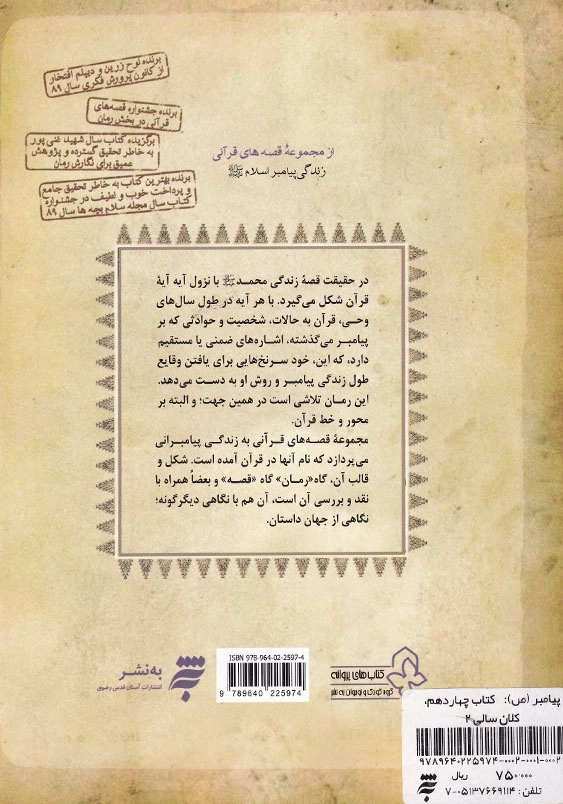 برنده لوح زرین و دیپلم افتخار
از کانون پرورش فکری سال ۸۹
برنده جشنواره قصه‌های
قرآنی در بخش رمان
برگزیده کتاب سال شهید غنی پور
به خاطر تحقیق گسترده و پژوهش
عمیق برای نگارش رمان
برنده بهترین کتاب به خاطر تحقیق جامع
و پرداخت خوب و لطیف در جشنواره
کتاب سال مجله سلام بچه ها سال ۸۹
از مجموعهٔ قصه های قرآنی
زندگی پیامبر اسلام ﷺ
در حقیقت قصهٔ زندگی محمدﷺ با نزول آیه آیهٔ
قرآن شکل می‌گیرد. با هر آیه در طول سال‌های
وحی، قرآن به حالات، شخصیت و حوادثی که بر
پیامبر می‌گذشته، اشاره‌های ضمنی یا مستقیم
دارد، که این، خود سرنخ‌هایی برای یافتن وقایع
طول زندگی پیامبر و روش او به دست می‌دهد.
این رمان تلاشی است در همین جهت؛ و البته بر
محور و خط قرآن.
مجموعهٔ قصه‌های قرآنی به زندگی پیامبرانی
می‌پردازد که نام آنها در قرآن آمده است. شکل و
قالب آن، گاه «رمان» گاه «قصه» و بعضاً همراه با
نقد و بررسی آن است، آن هم با نگاهی دیگرگونه؛
نگاهی از جهان داستان.
ISBN 978-964-02-2597-4
9 789640 225974
به‌نشر
انتشارات آستان قدس رضوی
کتاب های پروانه
گروه کودک و نوجوان به نشر
پیامبر (ص): کتاب چهاردهم،
کلان سالی ۲
۹۷۸۹۶۴۰۲۲۵۹۷۴-۰۰۰۲-۰۰۰۱-۰۰۰۲
۷۵۰۰۰۰ ریال
تلفن : ۷-۰۵۱۳۷۶۶۹۱۱۴